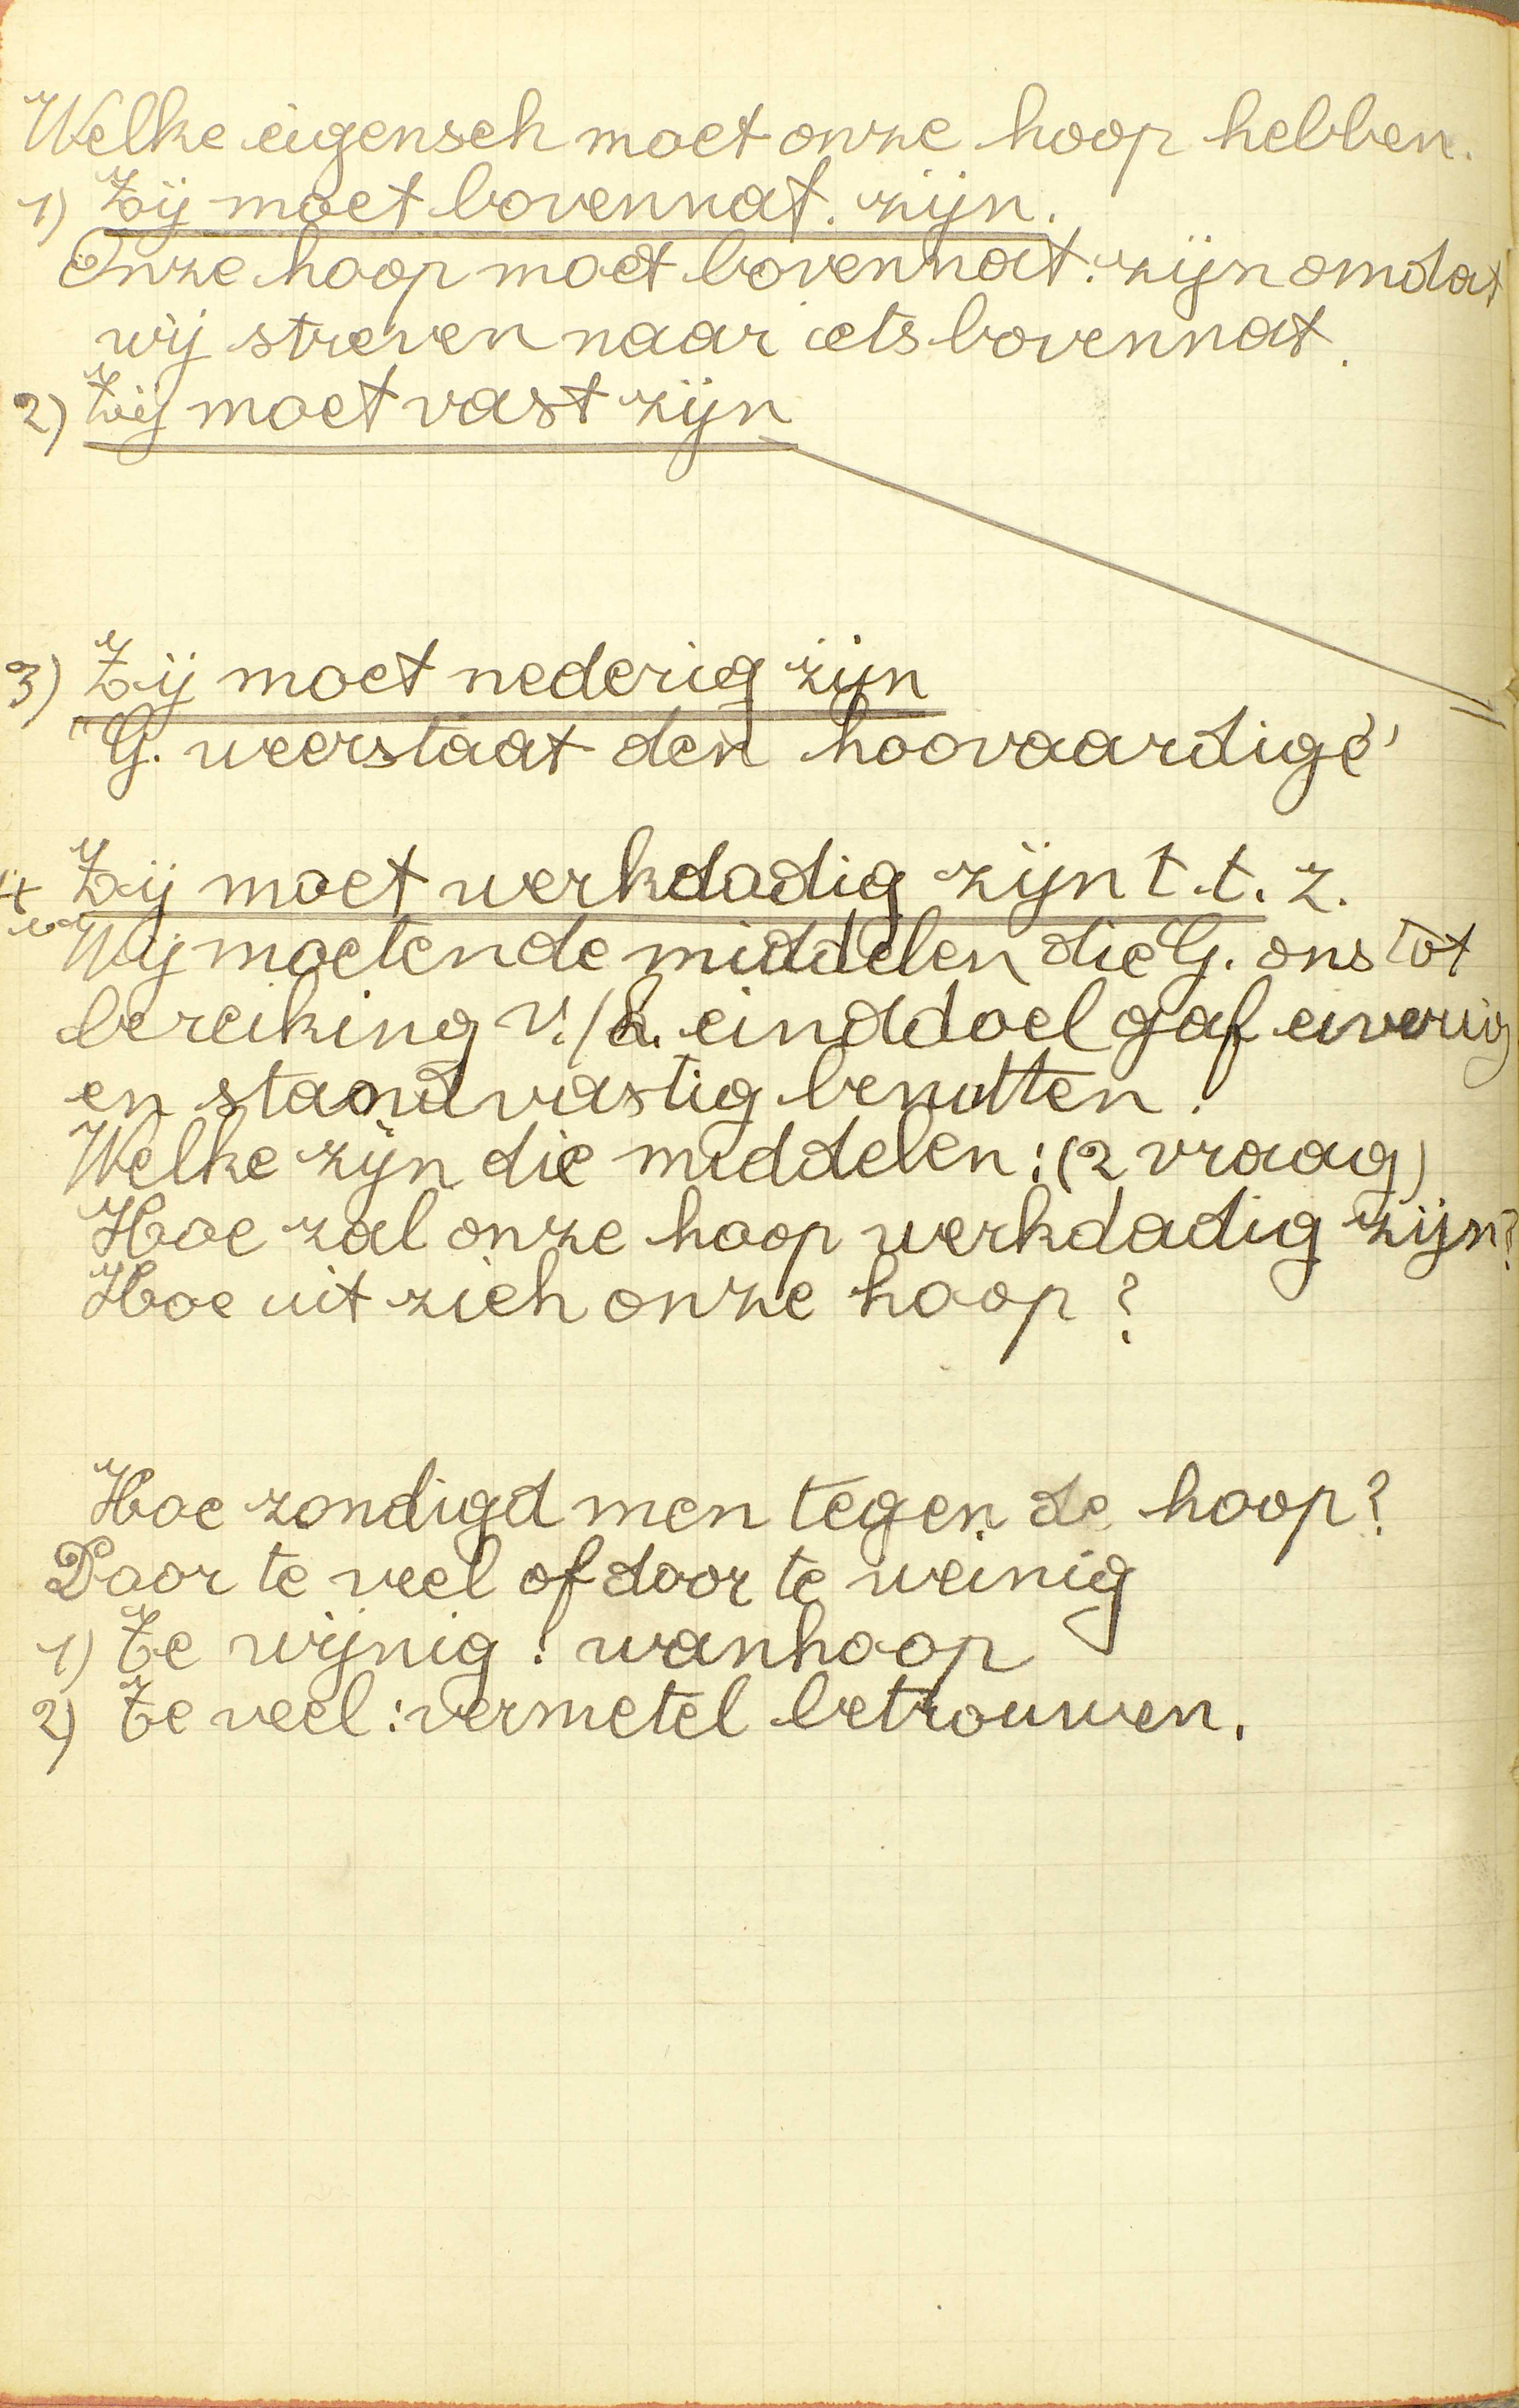 Welke eigensch moet onze hoop hebben.
1) Zij moet bovennat. zijn.
Onze hoop moet bovennat. zijn omdat
wij streven naar iets bovennat.
2) Zij moet vast zijn
3) Zij moet nederig zijn
"G. weerstaat den hoovaardige"
4 Zij moet werkdadig zijn t.t.z.
Wij moeten de middelen die G. ons tot
bereiking v./h. einddoel gaf eiverig
en standvastig benutten.
Welke zijn die middelen: (2 vraag)
Hoe zal onze hoop werkdadig zijn?
Hoe uit zich onze hoop?
Hoe zondigd men tegen de hoop?
Door te veel of door te weinig
1) Te wijnig: wanhoop
2) Te veel: vermetel betrouwen.